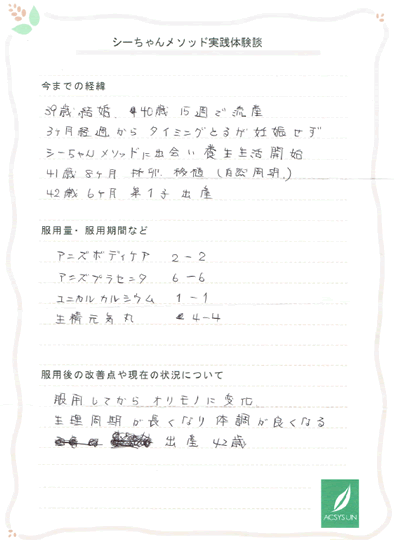 シーちゃんメソッド実践体験談
今までの経緯
39歳 結婚、40歳 15週で流産
3ヶ月経過から タイミングとるが 妊娠せず
シーちゃんメソッドに出会い 養生生活開始
41歳 8ヶ月 採卵 移植 (自然周期)
42歳 6ヶ月 第1子 出産
服用量・服用期間など
アニズボディケア 2-2
アニズプラセンタ 6-6
ユニカルカルシウム 1-1
生精元気丸 4-4
服用後の改善点や現在の状況について
服用してから オリモノに変化
生理周期が長くなり 体調が良くなる
出産 42歳
ACSYSLIN